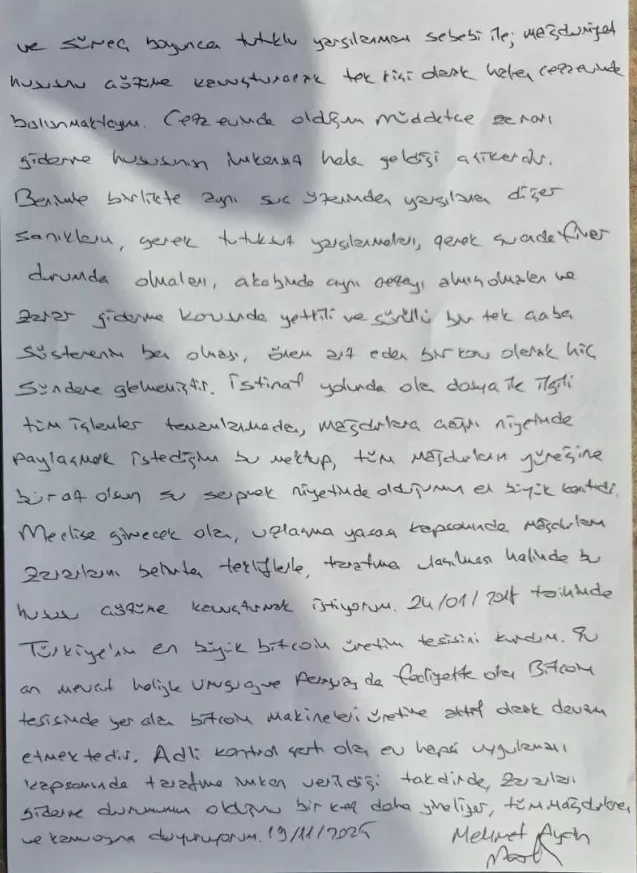 ve süreç boyunca tutuklu yargılanmam sebebi ile, mağduriyet
hususu çözüme kavuşturacak tek kişi olarak halen cezaevinde
bulunmaktayım. Cezaevinde olduğum müddetçe zararı
giderme hususunun imkansız hale geldiği aşikardır.
Benimle birlikte aynı suç üzerinden yargılanan diğer
sanıkların, gerek tutuksuz yargılanmaları, gerek şu anda firar
durumda olmaları, akabinde aynı cezayı almış olmaları ve
zarar giderme konusunda yetkili ve sürekli bir tek çaba
gösterenin ben olması, önem arz eden bir konu olarak hiç
gündeme gelmemiştir. İstinaf yolunda olan dosya ile ilgili
tüm işlemler tamamlanmadan, mağdurlara çağrı niyetinde
paylaşmak istediğim bu mektup, tüm mağdurların yüreğine
bir az olsun su serpmek niyetinde olduğumun en büyük kanıtıdır.
Meclise girecek olan, uzlaşma yasası kapsamında mağdurların
zararlarını belirten tekliflerle, tarafıma ulaşılması halinde bu
hususu çözüme kavuşturmak istiyorum. 24/01/ tarihinde
Türkiye'nin en büyük bitcoin üretim tesisini kurdum. Şu
an mevcut haliyle Uruguay ve Paraguay da faaliyette olan Bitcoin
tesisinde yer alan bitcoin makineleri üretime aktif olarak devam
etmektedir. Adli kontrol şartı olan ev hapsi uygulaması
kapsamında tarafıma imkan verildiği takdirde, zararları
giderme durumumun olduğunu bir kez daha yineliyor, tüm mağdurlara
ve kamuoyuna duyuruyorum. 19/11/2025
Mehmet Aydın